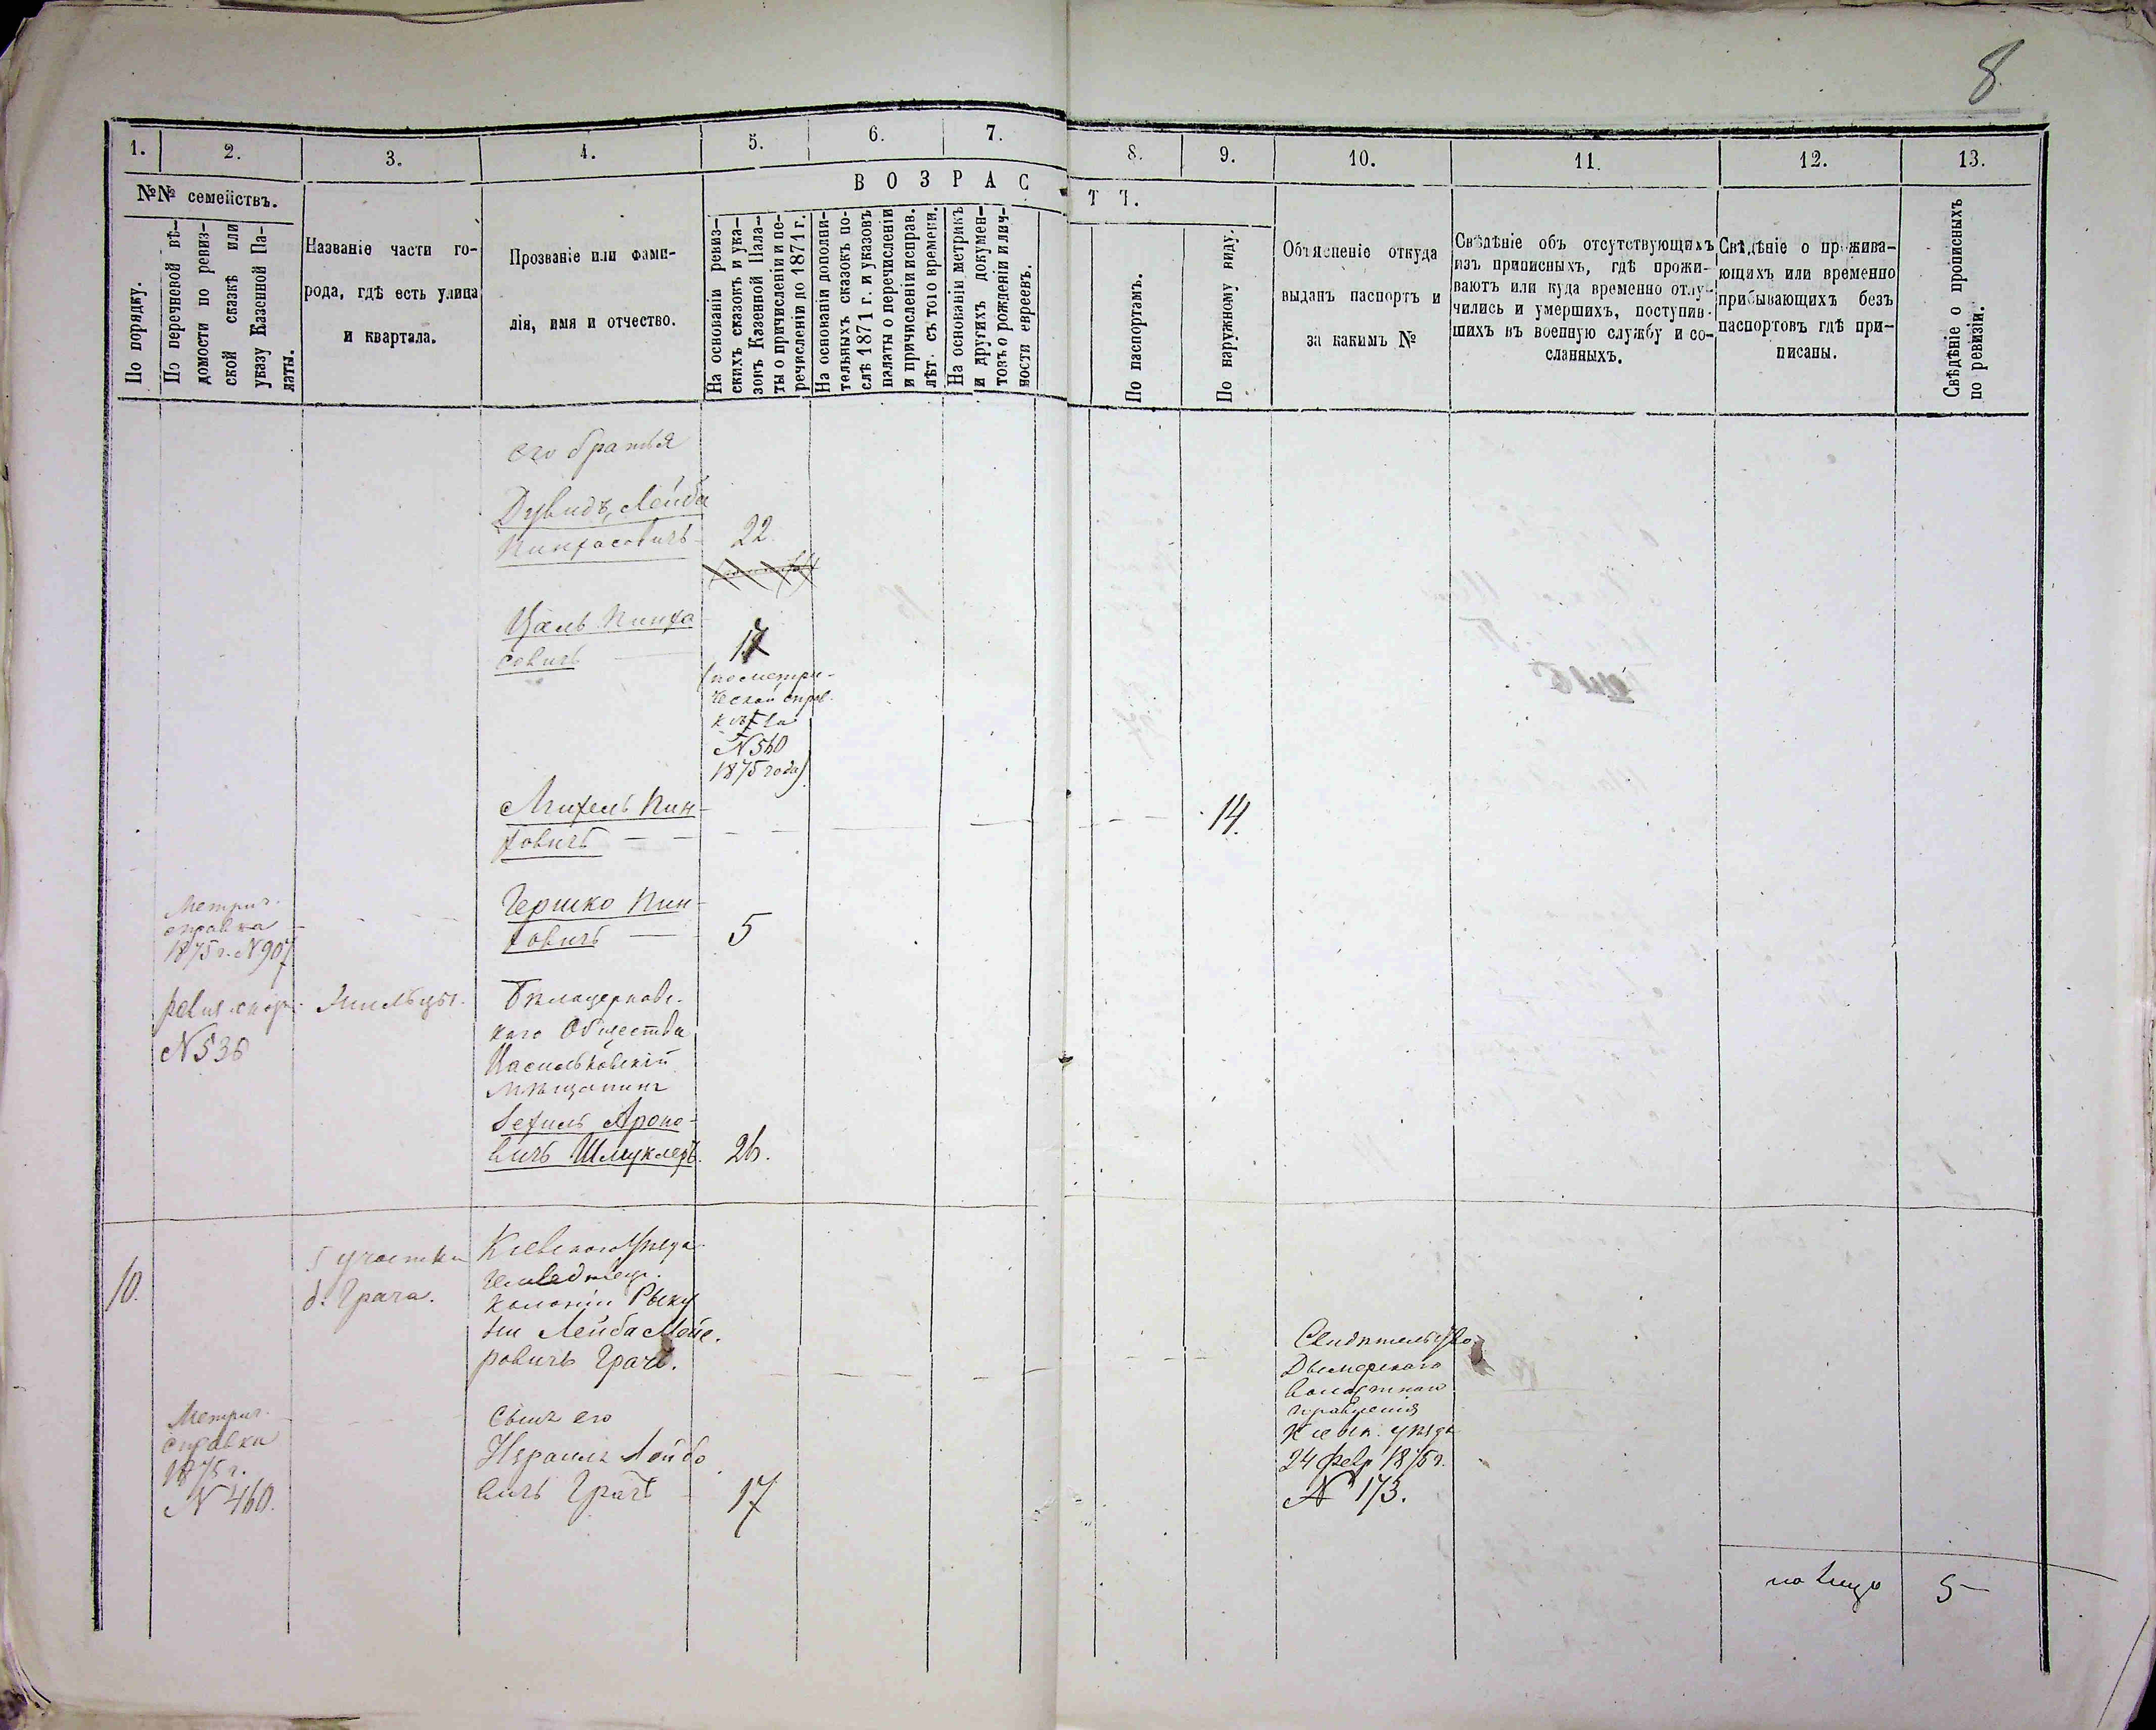 8
1.
2.
3.
4.
5.
6.
7.
8.
9.
10.
11.
12.
13.
№№ семействъ.
В О З Р А С
Т Ъ.
По порядку.
По перечневой вѣ-
домости по ревиз-
ской сказкѣ или
указу Казенной Па-
латы.
Названіе части го-
рода, гдѣ есть улица
и квартала.
Прозваніе или фами-
лія, имя и отчество.
На основаніи ревиз-
скихъ сказокъ и ука-
зовъ Казенной Пала-
ты о причисленіи и пе-
речисленіи до 1871 г.
На основаніи дополни-
тельныхъ сказокъ по-
слѣ 1871 г. и указовъ
палаты о перечисленіи
и причисленіи исправ.
лѣт. съ того времени.
На основаніи метрикъ
и другихъ докумен-
товъ о рожденіи и лич-
ности евреевъ.
По паспортамъ.
По наружному виду.
Объясненіе откуда
выданъ паспортъ и
за какимъ №
Свѣдѣніе объ отсутствующихъ
изъ приписныхъ, гдѣ прожи-
ваютъ или куда временно отлу-
чились и умершихъ, поступив-
шихъ въ военную службу и со-
сланныхъ.
Свѣдѣніе о прожива-
ющихъ или временно
прибывающихъ безъ
паспортовъ гдѣ при-
писаны.
Свѣдѣніе о прописныхъ
по ревизіи.
его братья
Дувидъ, Лейба
Пинхасовичъ 22
Цаль Пинха
совичъ 17
(по метри-
ческой справ-
кѣ за
№ 560
1875 года)
Михель Пин-
ховичъ 14.
Метрич.
справка
1875 г. № 907
Гершко Пин-
ховичъ 5
№ 536
Бѣлоцерковс-
каго Общества
Васильковскій
мѣщанинъ
Хехиль Ароно-
вичъ Шмуклеръ. 26.
10.
5 участка
д. Грача.
Кіевскаго Уѣзда
Земледѣльч.
колоніи Рыку
ни Лейба Мейе-
ровичъ Грачъ.
Свидѣтельство
Дымерскаго
Волостнаго
правленія
Кіевск. уѣзда
24 февр 1875 г.
№ 173.
Метрич.
справка
1875 г.
№ 460.
Сынъ его
Израиль Лейбо
вичъ Грачъ 17
на лицо 5